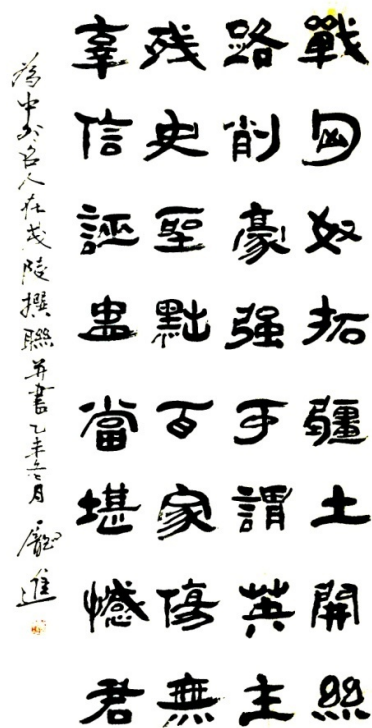 戰匈奴拓疆土開絲
路削豪强可謂英主
残史聖黜百家傷無
辜信誣蛊當堪憾君
為中外名人在茂陵撰聯并書乙未六月 龐進